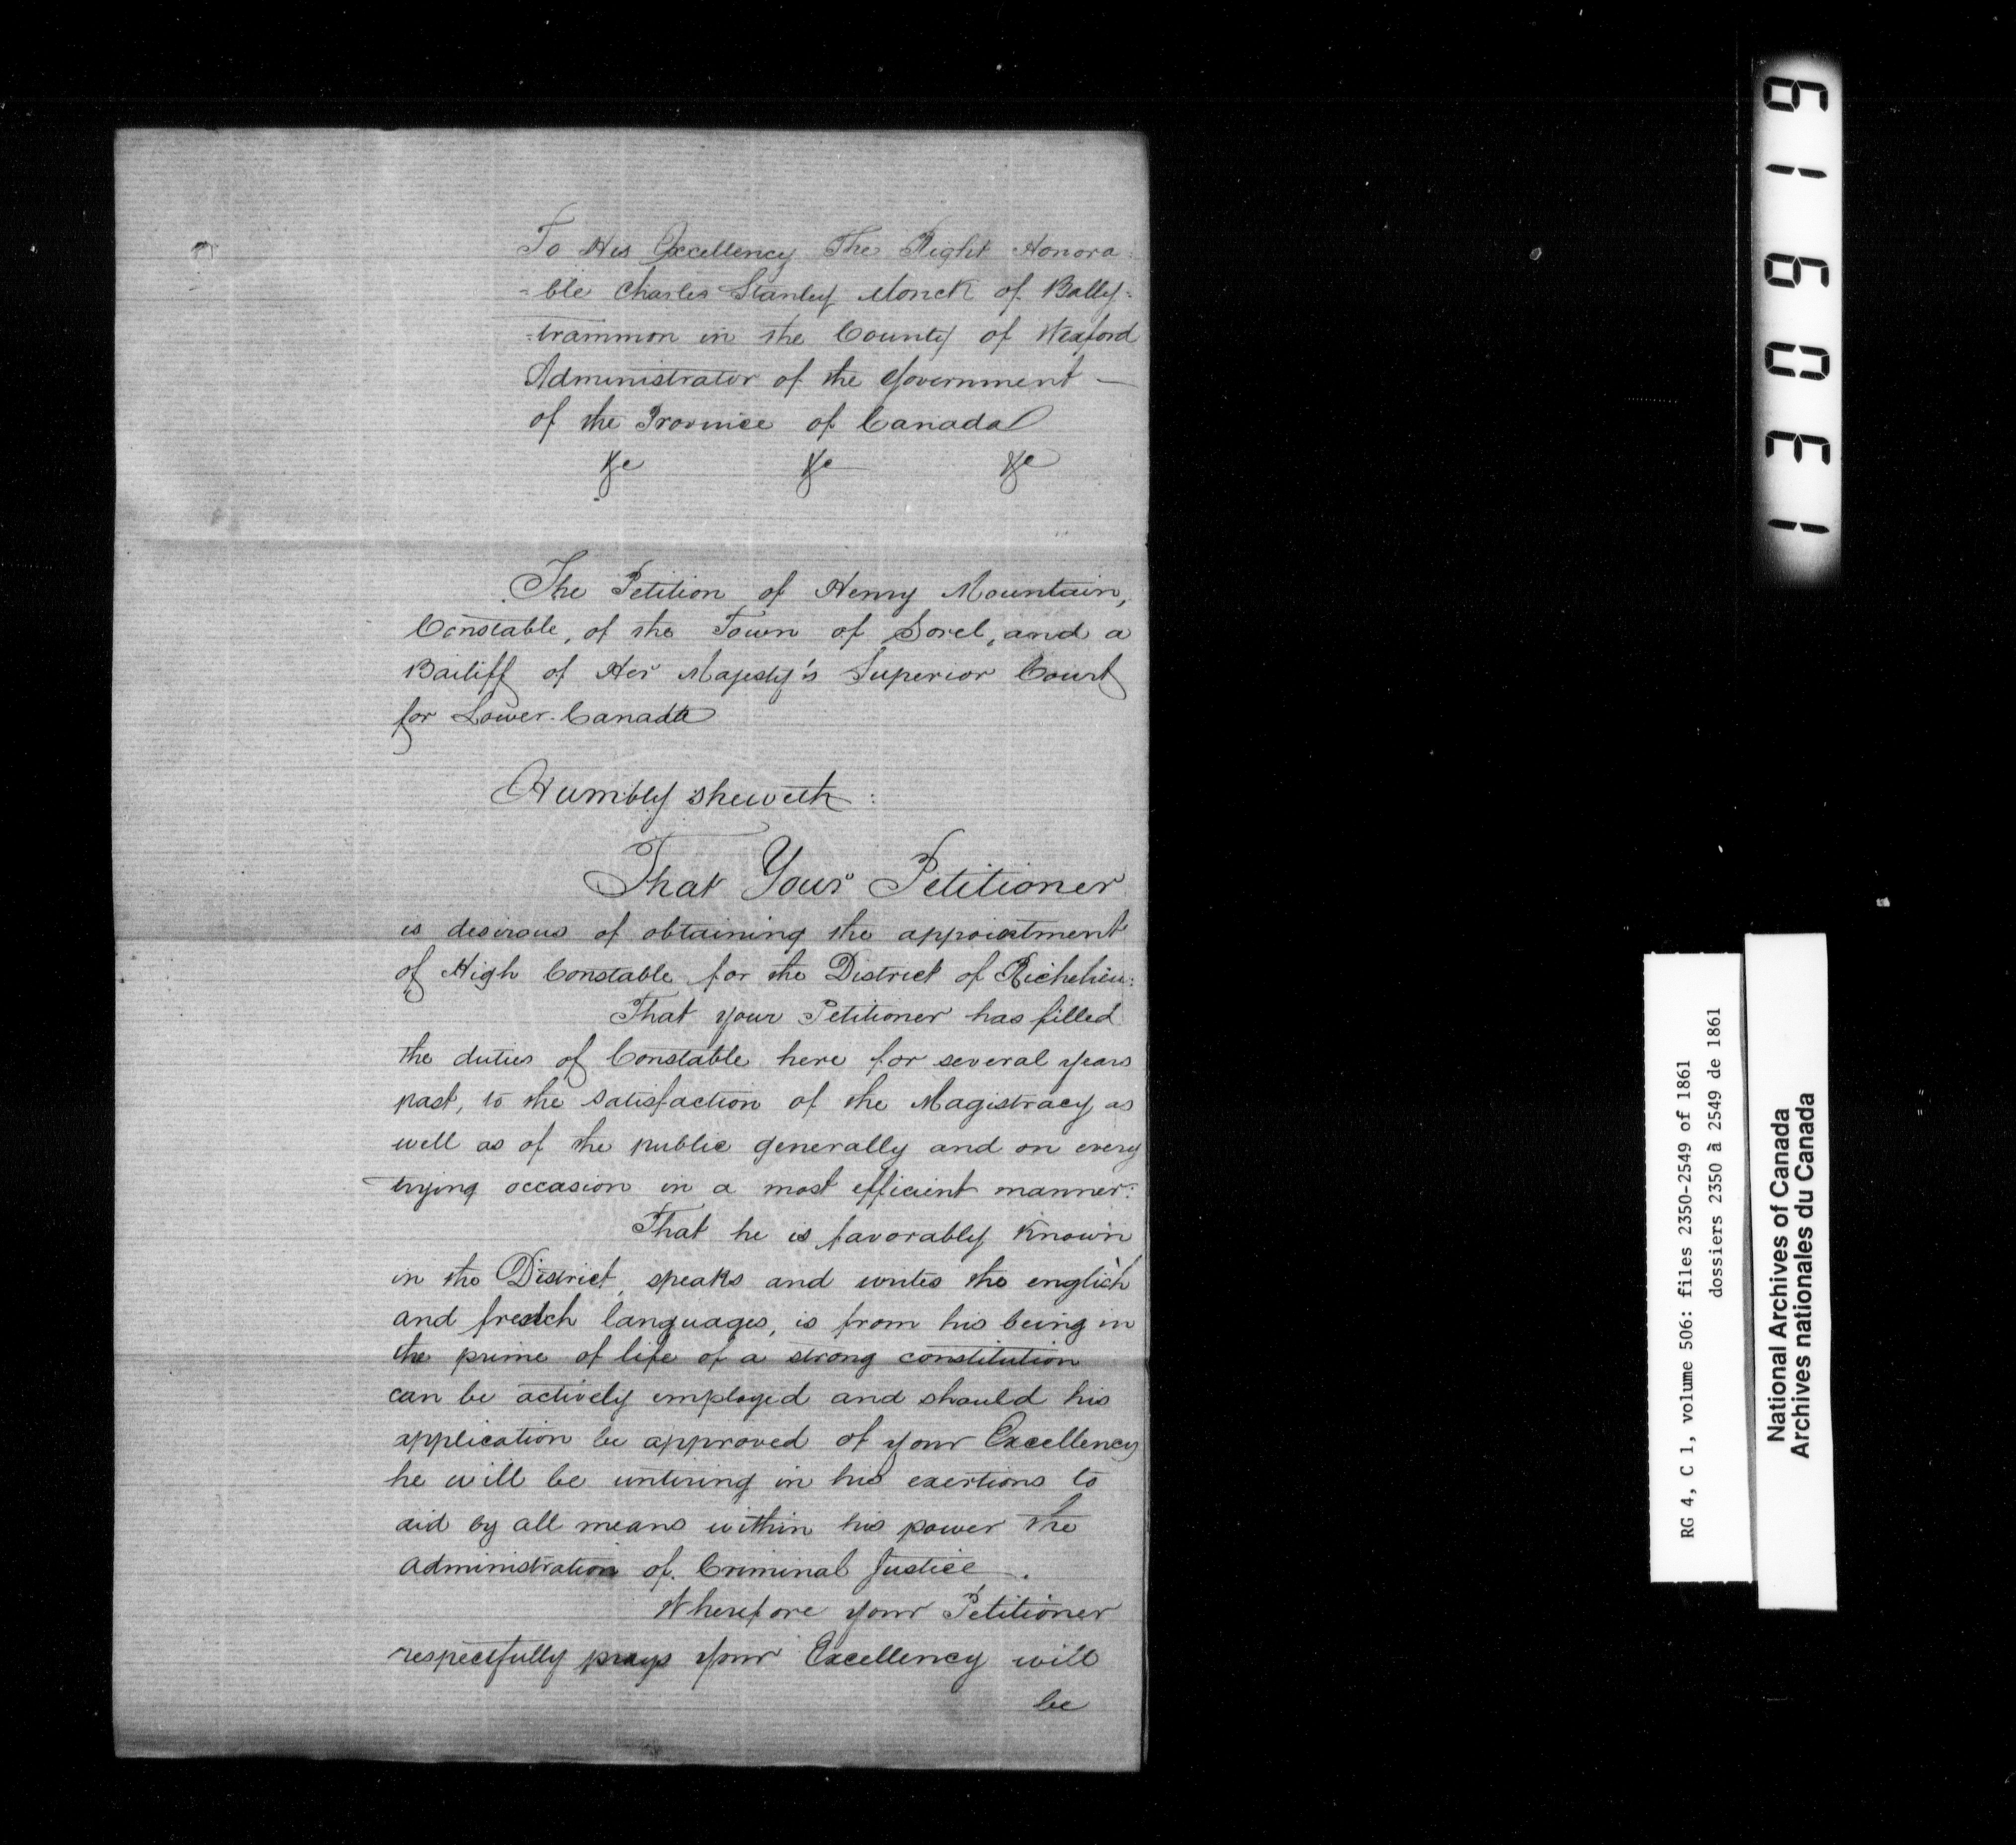 To His Excellency The Right Honora-
-ble Charles Stanley Monck of Bally-
-trammon in the County of Wexford
Administrator of the Government —
of the Province of Canada
&c &c &c
The Petition of Henry Mountain,
Constable, of the Town of Sorel, and a
Bailiff of Her Majesty's Superior Court
for Lower-Canada
Humbly sheweth:
That Your Petitioner
is desirous of obtaining the appointment
of High Constable for the District of Richelieu:
That your Petitioner has filled
the duties of Constable here for several years
past, to the satisfaction of the Magistracy as
well as of the public generally and on every
trying occasion in a most efficient manner:
That he is favorably known
in the District, speaks and writes the english
and french languages, is from his being in
the prime of life of a strong constitution
can be actively employed and should his
application be approved of your Excellency
he will be untiring in his exertions to
aid by all means within his power the
administration of Criminal Justice.
Wherefore your Petitioner
respectfully prays your Excellency will
be
130919
RG 4, C 1, volume 506: files 2350-2549 of 1861
dossiers 2350 à 2549 de 1861
National Archives of Canada
Archives nationales du Canada